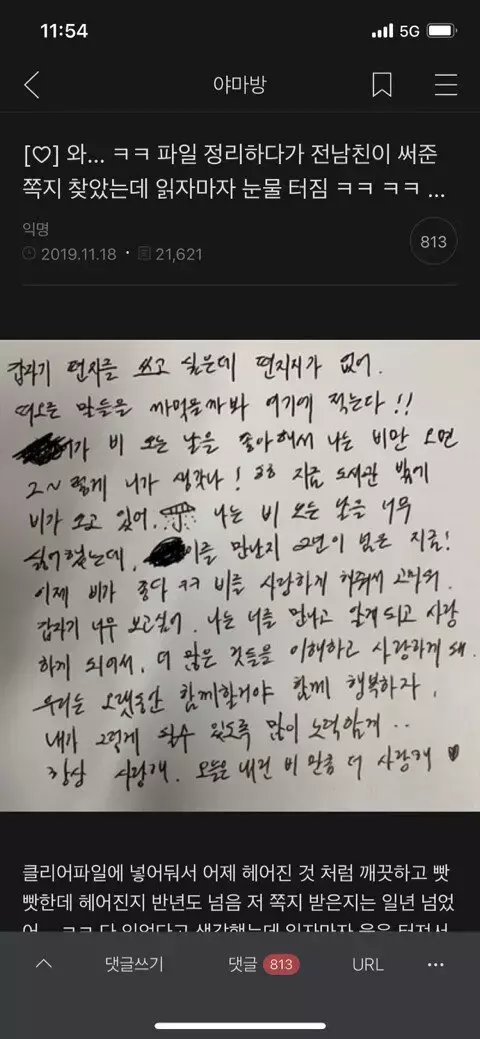 11:54 5G
야마방
[♡] 와... ㅋㅋ 파일 정리하다가 전남친이 써준
쪽지 찾았는데 읽자마자 눈물 터짐 ㅋㅋ ㅋㅋ ...
익명
2019.11.18 · 21,621
813
갑자기 편지를 쓰고 싶은데 편지지가 없어.
떠오른 말들을 까먹을까봐 여기에 적는다!!
가 비 오는 날을 좋아해서 나는 비만 오면
그~렇게 니가 생각나! 지금 도서관 밖에
비가 오고 있어. 나는 비 오는 날을 너무
싫어했는데, 이를 만난지 2년이 넘은 지금!
이제 비가 좋다 ㅋㅋ 비를 사랑하게 해줘서 고마워.
갑자기 너무 보고싶어. 나는 너를 만나고 알게되고 사랑
하게 되어서, 더 많은 것들을 이해하고 사랑하게 돼.
우리는 오랫동안 함께할거야 함께 행복하자.
내가 그렇게 될수 있도록 많이 노력할게..
항상 사랑해. 오늘은 내린 비 만큼 더 사랑해 ♥
클리어파일에 넣어둬서 어제 헤어진 것 처럼 깨끗하고 빳
빳한데 헤어진지 반년도 넘음 저 쪽지 받은지는 일년 넘었
어... ㅋㅋ 다 잊었다고 생각했는데 읽자마자 울음 터져서
댓글쓰기 댓글 813 URL ...